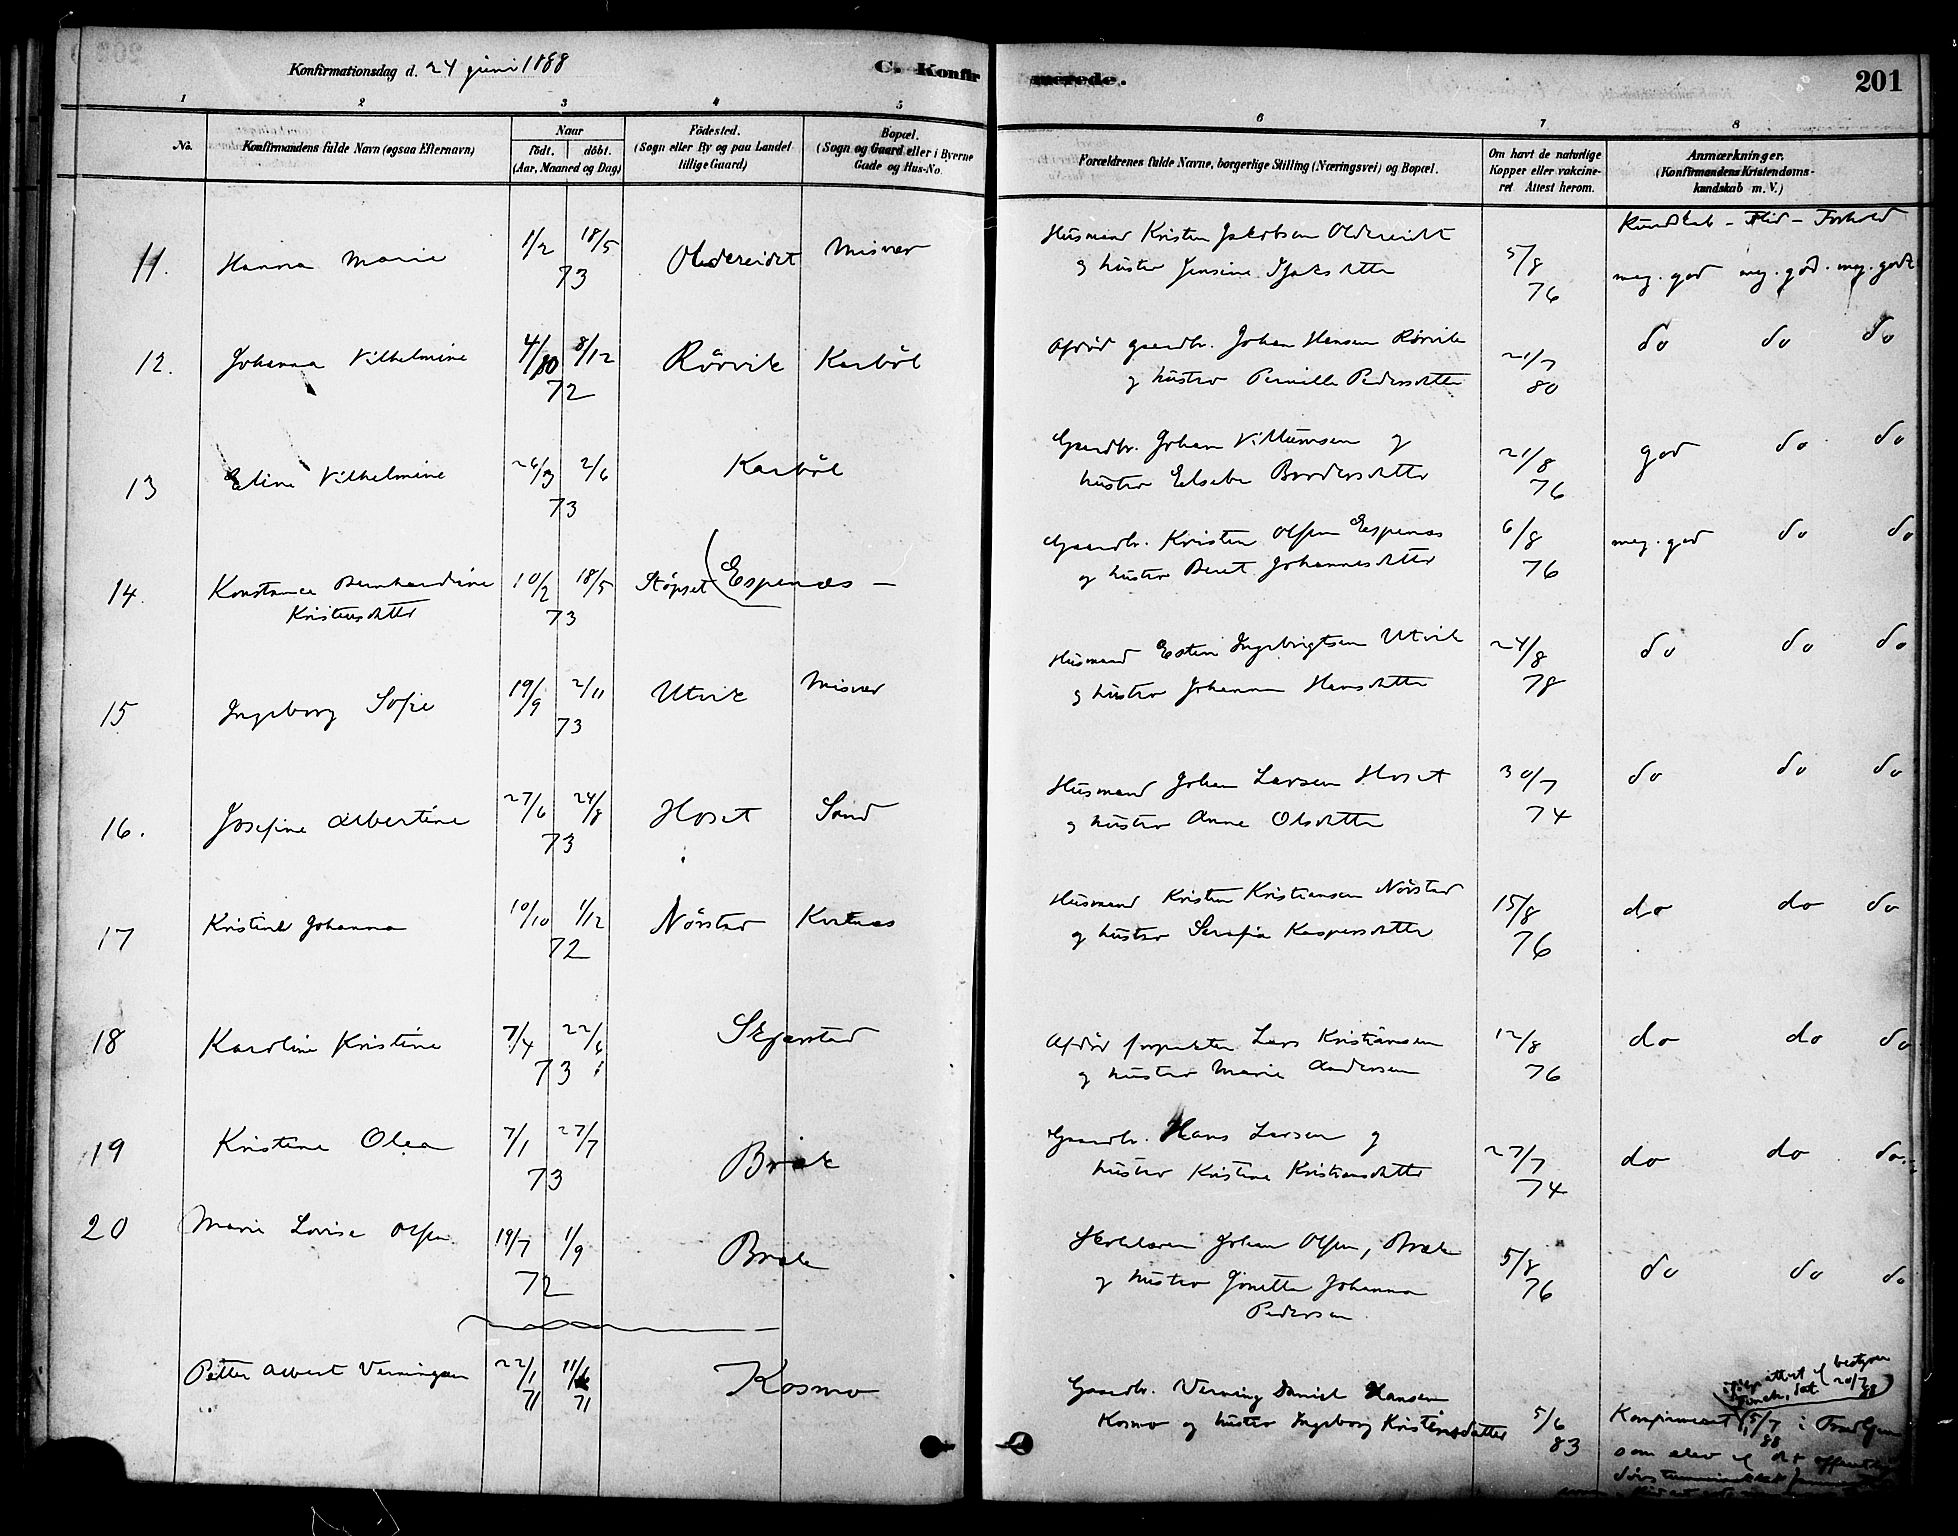 Konfirmationsdag d. 24 juni 1888
C. Konfirmerede.
201
1 2 3 4 5 6 7 8
No.
Konfirmandens fulde Navn (ogsaa Efternavn)
Naar
födt. döbt.
(Aar, Maaned og Dag)
Födested.
(Sogn eller By og paa Landet
tillige Gaard)
Bopæl.
(Sogn og Gaard eller i Byerne
Gade og Hus-No.
Forældrenes fulde Navne, borgerlige Stilling (Næringsvei) og Bopæl.
Om havt de naturlige
Kopper eller vakcine-
ret Attest herom.
Anmærkninger.
(Konfirmandens Kristendoms-
kundskab m. V.)
Kundskab - Flid - Forhold
11. Hanna Marie 1/2 18/5 73 Oldereidet Misvær
Husmand Kristen Jakobsen Oldereidet
og hustro Jensine Isaksdatter 5/8 76 meg. god meg. god. meg. godt
12. Johanna Vilhelmine 4/10 8/12 72 Rörvik Karböl
Afdød gaardbr. Johan Hansen Rörvik
og hustro Pernille Pedersdatter 21/7 80 do do do
13 Eline Vilhelmine 26/3 2/6 73 Karböl
Gaardbr. Johan Villumsen og
hustro Elseba Brodersdatter 21/8 76 god do do
14. Konstance Bernhardine
Kristensdatter 10/2 18/5 73 Støpset (Espenæs -
Gaardbr. Kristen Olsen Espenæs
og hustro Beret Johannesdatter 6/8 76 meg. god do do
15 Ingeborg Sofie 19/9 2/11 73 Utvik Misvær
Husmand Esten Ingebrigtsen Utvik
og hustro Johanna Hansdatter 24/8 78 do do do
16. Josefine Albertine 27/6 24/8 73 Hoset Sand
Husmand Johan Larsen Hoset
og hustro Anne Olsdatter 30/7 74 do do do
17 Kristine Johanna 10/10 1/12 72 Nörstad Kvitnæs
Husmand Kristen Kristiansen Nörstad
og hustro Serafia Kaspersdatter 15/8 76 do do do
18 Karoline Kristine 7/4 22/6 73 Skjerstad
Afdød Lars Kristiansen
og hustro Marie Andersen 12/8 76 do do do
19 Kristine Olea 7/1 27/7 73 Bræk
Gaardbr. Hans Larsen og
hustro Kristine Kristiansdatter 27/7 74 do do do
20 Marie Lovise Olsen 19/7 1/9 72 Bræk
Johan Olsen, Bræk
og hustro Jonetta Johanna
Pedersen 5/8 76 do do do
Petter Albert Verningsen 22/1 71 11/6 71 Kosmo
Gaardbr. Verning Daniel Hansen
Kosmo og hustro Ingeborg Kristensdatter 5/6 83
20/7 88
Konfirmeret 15/7 88 i
som elev